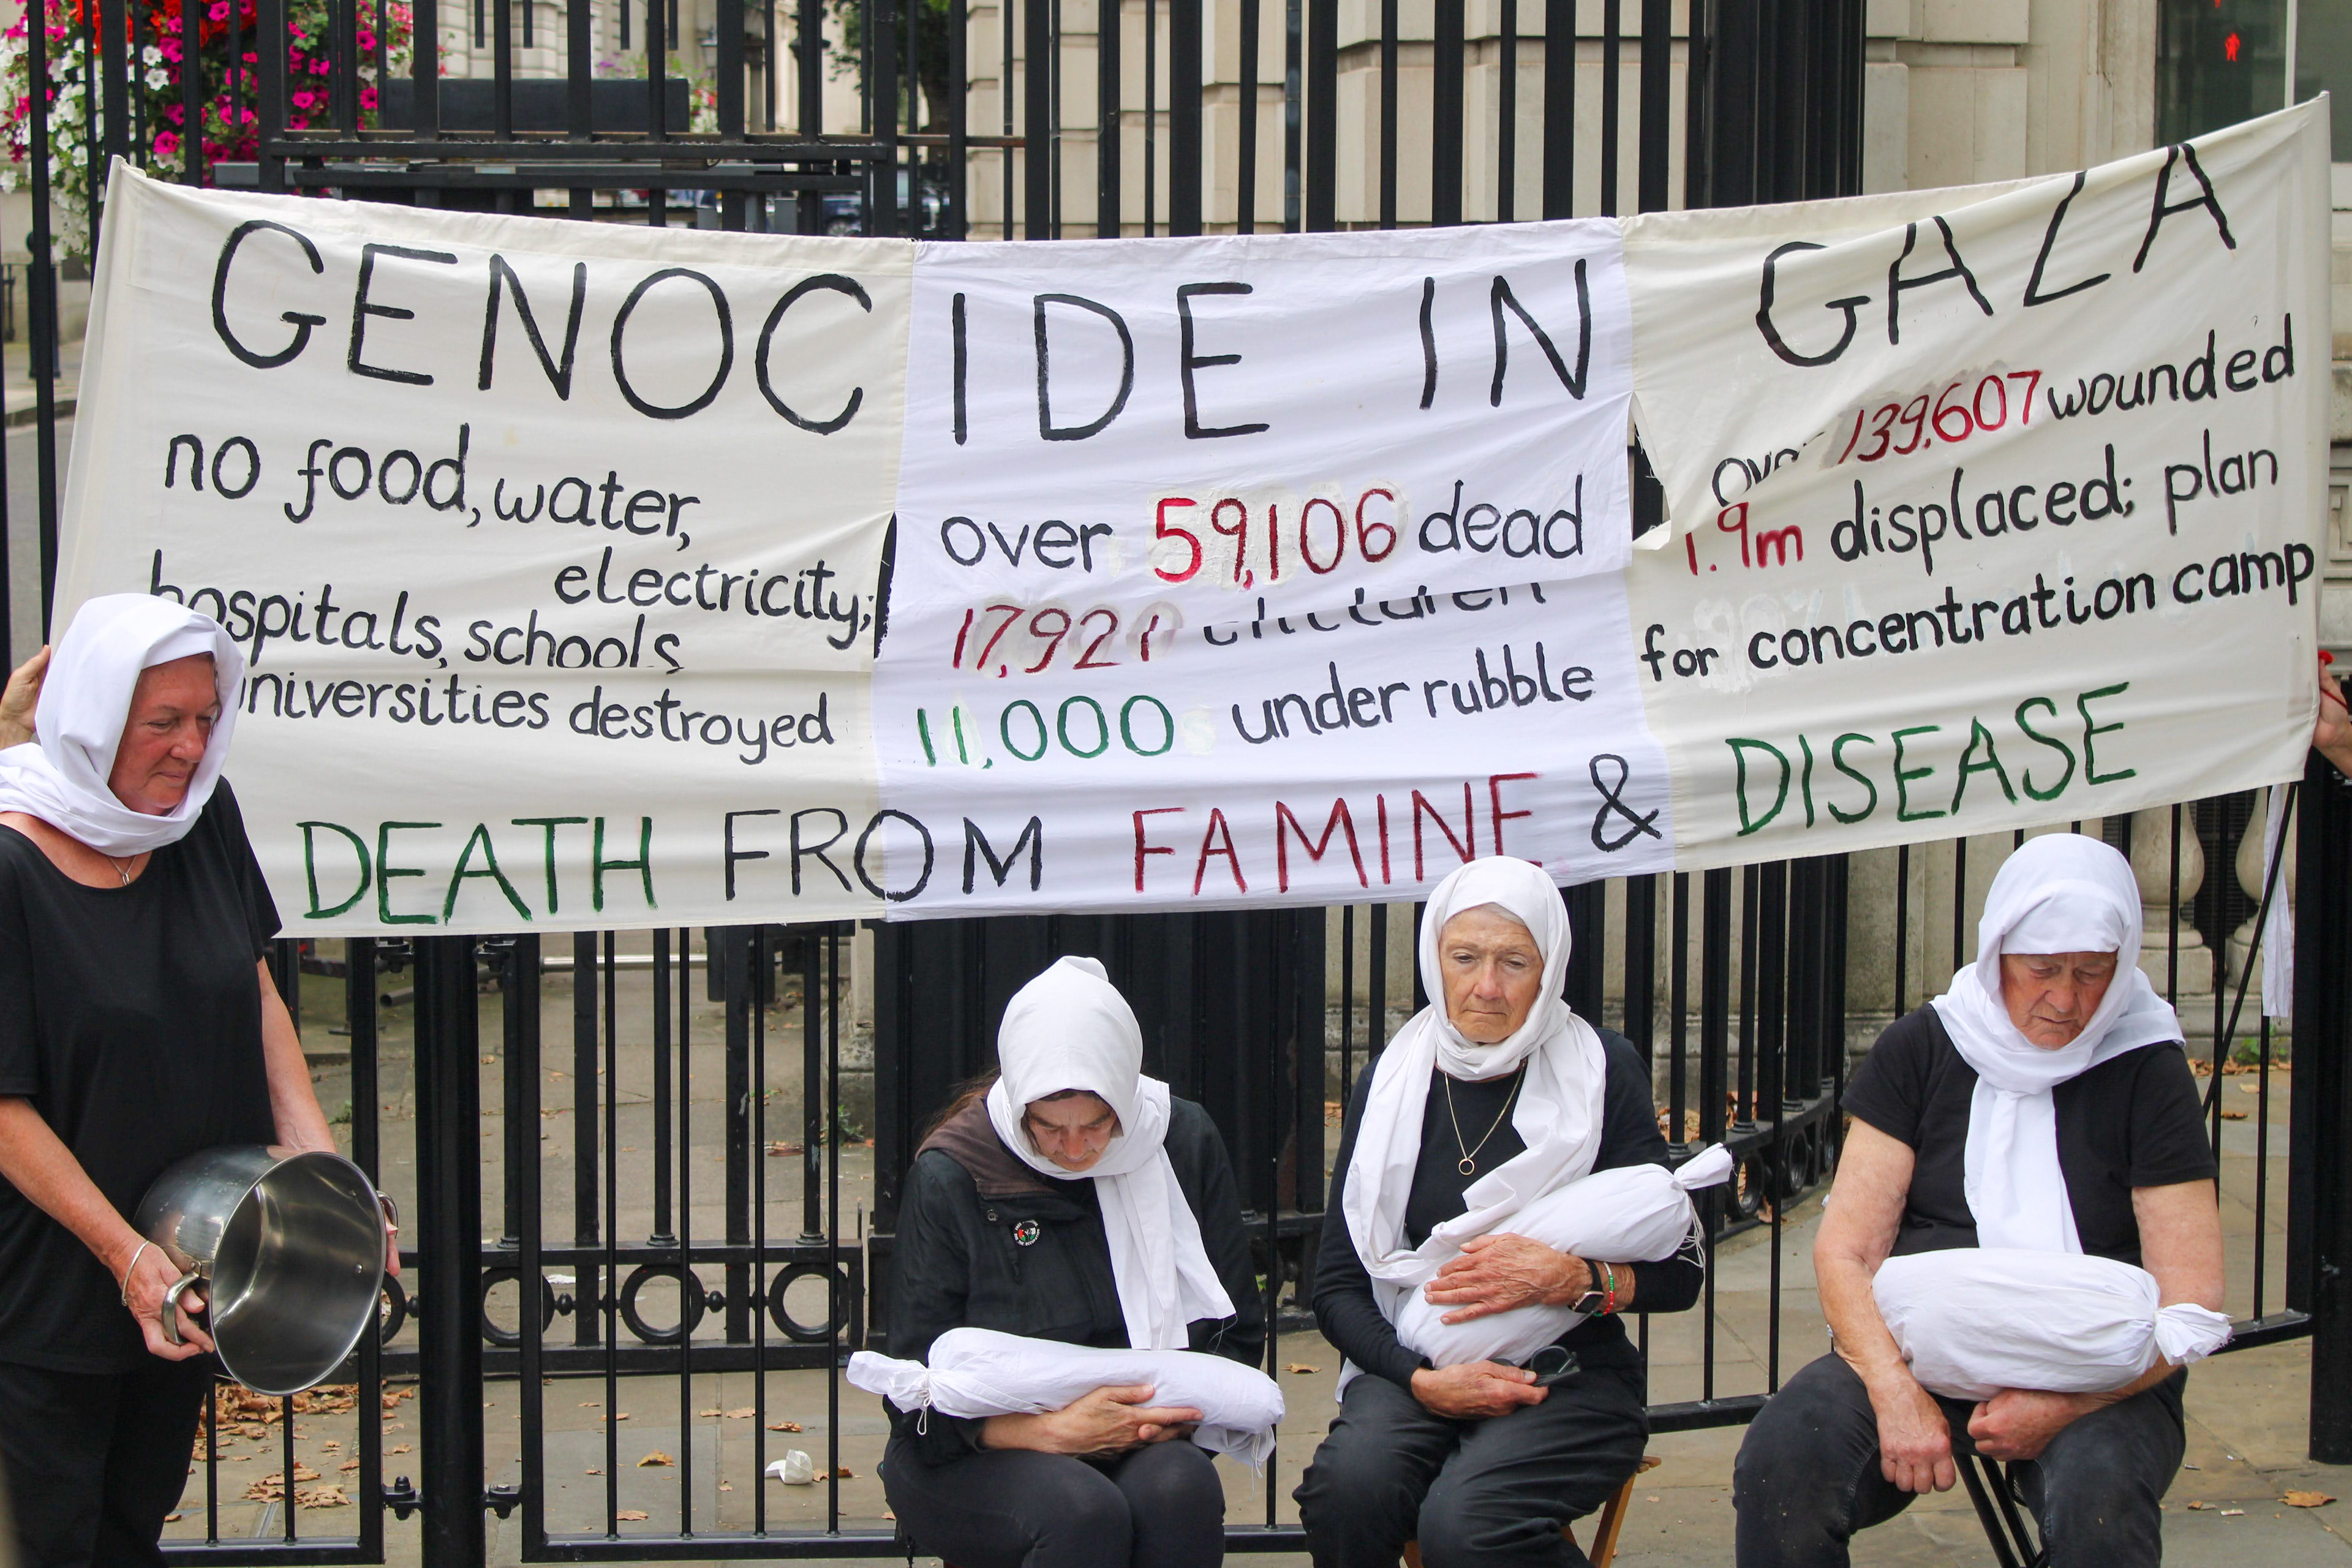 GENOCIDE IN GAZA
no food, water,
electricity;
hospitals, schools
universities destroyed
over 59,106 dead
17,921 children
11,000 under rubble
over 139,607 wounded
1.9m displaced; plan
for concentration camp
DEATH FROM FAMINE & DISEASE